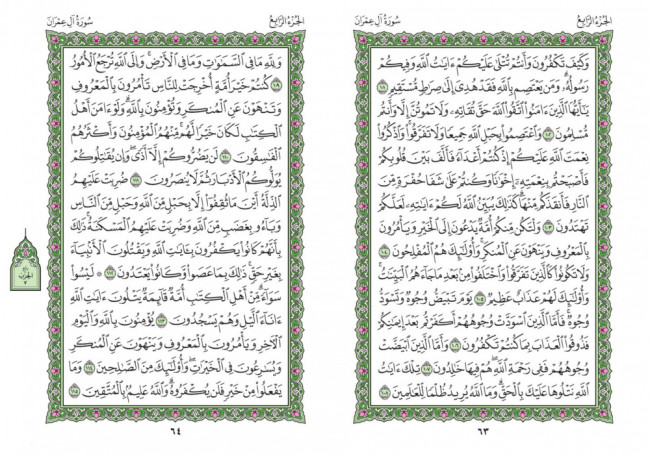 سُورَةُ آلِ عِمْرَانَ الجُزْءُ الرَّابِعُ
وَكَيْفَ تَكْفُرُونَ وَأَنتُمْ تُتْلَىٰ عَلَيْكُمْ ءَايَٰتُ ٱللَّهِ وَفِيكُمْ
رَسُولُهُۥۗ وَمَن يَعْتَصِم بِٱللَّهِ فَقَدْ هُدِيَ إِلَىٰ صِرَٰطٍ مُّسْتَقِيمٍ ١٠١
يَٰٓأَيُّهَا ٱلَّذِينَ ءَامَنُوا۟ ٱتَّقُوا۟ ٱللَّهَ حَقَّ تُقَاتِهِۦ وَلَا تَمُوتُنَّ إِلَّا وَأَنتُم
مُّسْلِمُونَ ١٠٢ وَٱعْتَصِمُوا۟ بِحَبْلِ ٱللَّهِ جَمِيعًا وَلَا تَفَرَّقُوا۟ۚ وَٱذْكُرُوا۟
نِعْمَتَ ٱللَّهِ عَلَيْكُمْ إِذْ كُنتُمْ أَعْدَآءً فَأَلَّفَ بَيْنَ قُلُوبِكُمْ
فَأَصْبَحْتُم بِنِعْمَتِهِۦٓ إِخْوَٰنًا وَكُنتُمْ عَلَىٰ شَفَا حُفْرَةٍ مِّنَ
ٱلنَّارِ فَأَنقَذَكُم مِّنْهَاۗ كَذَٰلِكَ يُبَيِّنُ ٱللَّهُ لَكُمْ ءَايَٰتِهِۦ لَعَلَّكُمْ
تَهْتَدُونَ ١٠٣ وَلْتَكُن مِّنكُمْ أُمَّةٌ يَدْعُونَ إِلَى ٱلْخَيْرِ وَيَأْمُرُونَ
بِٱلْمَعْرُوفِ وَيَنْهَوْنَ عَنِ ٱلْمُنكَرِۚ وَأُو۟لَٰٓئِكَ هُمُ ٱلْمُفْلِحُونَ ١٠٤
وَلَا تَكُونُوا۟ كَٱلَّذِينَ تَفَرَّقُوا۟ وَٱخْتَلَفُوا۟ مِنۢ بَعْدِ مَا جَآءَهُمُ ٱلْبَيِّنَٰتُۚ
وَأُو۟لَٰٓئِكَ لَهُمْ عَذَابٌ عَظِيمٌ ١٠٥ يَوْمَ تَبْيَضُّ وُجُوهٌ وَتَسْوَدُّ
وُجُوهٌۚ فَأَمَّا ٱلَّذِينَ ٱسْوَدَّتْ وُجُوهُهُمْ أَكَفَرْتُم بَعْدَ إِيمَٰنِكُمْ
فَذُوقُوا۟ ٱلْعَذَابَ بِمَا كُنتُمْ تَكْفُرُونَ ١٠٦ وَأَمَّا ٱلَّذِينَ ٱبْيَضَّتْ
وُجُوهُهُمْ فَفِي رَحْمَةِ ٱللَّهِۖ هُمْ فِيهَا خَٰلِدُونَ ١٠٧ تِلْكَ ءَايَٰتُ
ٱللَّهِ نَتْلُوهَا عَلَيْكَ بِٱلْحَقِّۗ وَمَا ٱللَّهُ يُرِيدُ ظُلْمًا لِّلْعَٰلَمِينَ ١٠٨
٦٣
الجُزْءُ الرَّابِعُ سُورَةُ آلِ عِمْرَانَ
وَلِلَّهِ مَا فِي ٱلسَّمَٰوَٰتِ وَمَا فِي ٱلْأَرْضِۚ وَإِلَى ٱللَّهِ تُرْجَعُ ٱلْأُمُورُ
١٠٩ كُنتُمْ خَيْرَ أُمَّةٍ أُخْرِجَتْ لِلنَّاسِ تَأْمُرُونَ بِٱلْمَعْرُوفِ
وَتَنْهَوْنَ عَنِ ٱلْمُنكَرِ وَتُؤْمِنُونَ بِٱللَّهِۗ وَلَوْ ءَامَنَ أَهْلُ
ٱلْكِتَٰبِ لَكَانَ خَيْرًا لَّهُمۚ مِّنْهُمُ ٱلْمُؤْمِنُونَ وَأَكْثَرُهُمُ
ٱلْفَٰسِقُونَ ١١٠ لَن يَضُرُّوكُمْ إِلَّآ أَذًىۖ وَإِن يُقَٰتِلُوكُمْ
يُوَلُّوكُمُ ٱلْأَدْبَارَ ثُمَّ لَا يُنصَرُونَ ١١١ ضُرِبَتْ عَلَيْهِمُ
ٱلذِّلَّةُ أَيْنَ مَا ثُقِفُوٓا۟ إِلَّا بِحَبْلٍ مِّنَ ٱللَّهِ وَحَبْلٍ مِّنَ ٱلنَّاسِ
وَبَآءُو بِغَضَبٍ مِّنَ ٱللَّهِ وَضُرِبَتْ عَلَيْهِمُ ٱلْمَسْكَنَةُۚ ذَٰلِكَ
بِأَنَّهُمْ كَانُوا۟ يَكْفُرُونَ بِـَٔايَٰتِ ٱللَّهِ وَيَقْتُلُونَ ٱلْأَنۢبِيَآءَ
بِغَيْرِ حَقٍّۚ ذَٰلِكَ بِمَا عَصَوا۟ وَّكَانُوا۟ يَعْتَدُونَ ١١٢ لَيْسُوا۟
سَوَآءًۗ مِّنْ أَهْلِ ٱلْكِتَٰبِ أُمَّةٌ قَآئِمَةٌ يَتْلُونَ ءَايَٰتِ ٱللَّهِ
ءَانَآءَ ٱلَّيْلِ وَهُمْ يَسْجُدُونَ ١١٣ يُؤْمِنُونَ بِٱللَّهِ وَٱلْيَوْمِ
ٱلْءَاخِرِ وَيَأْمُرُونَ بِٱلْمَعْرُوفِ وَيَنْهَوْنَ عَنِ ٱلْمُنكَرِ
وَيُسَٰرِعُونَ فِي ٱلْخَيْرَٰتِۖ وَأُو۟لَٰٓئِكَ مِنَ ٱلصَّٰلِحِينَ ١١٤ وَمَا
يَفْعَلُوا۟ مِنْ خَيْرٍ فَلَن يُكْفَرُوهُۗ وَٱللَّهُ عَلِيمٌۢ بِٱلْمُتَّقِينَ ١١٥
٦٤
الحزب
٧